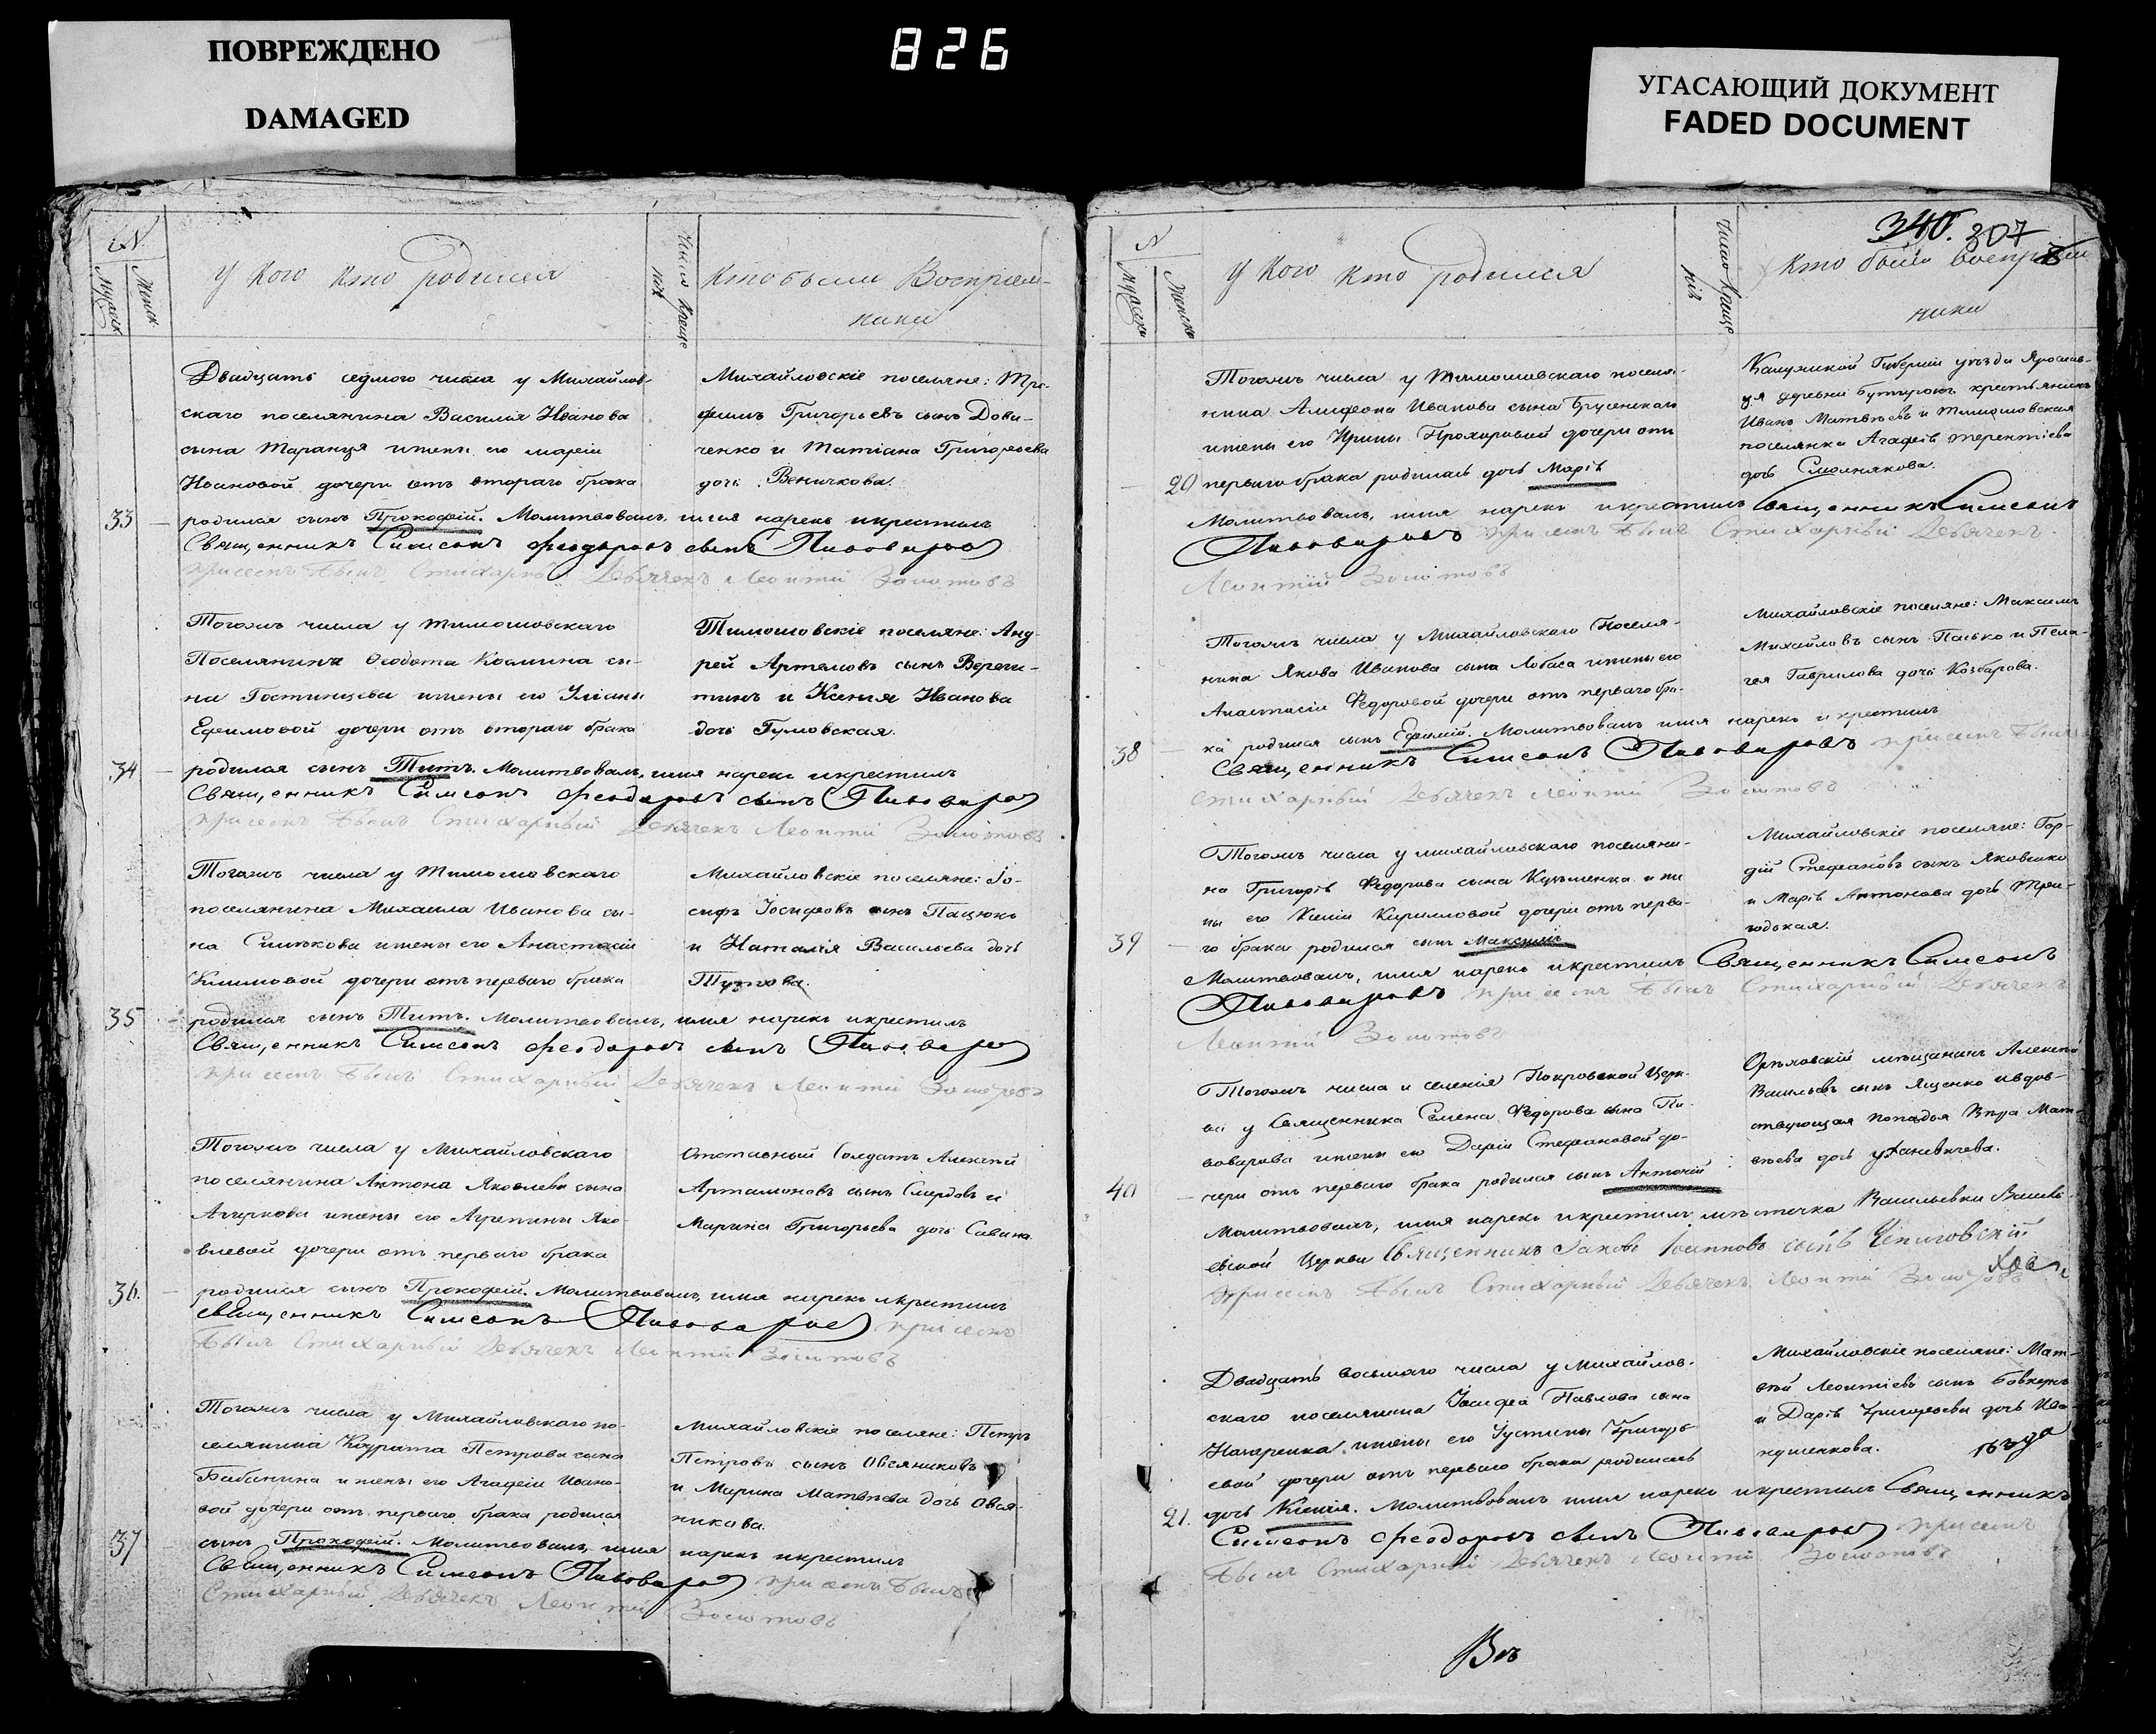 ПОВРЕЖДЕНО
DAMAGED
826
УГАСАЮЩИЙ ДОКУМЕНТ
FADED DOCUMENT
N
Мужеск
Женск
У кого кто родился
Число креще
нія
Кто были Воспріем-
ники
Двадцать седмого числа у Михайлов-
скаго поселянина Василія Иванова
сына Таранця и жены его Маріи
Ивановой дочери отъ втораго брака
33 родился сынъ Прокофій. Молитвовалъ, имя нарекъ и крестилъ
Священникъ Симеонъ Феодоровъ сынъ Пивоваровъ
при семъ былъ Стихарный Дьячекъ Леонтій Золотовъ
Михайловскіе поселяне: Тро-
фимъ Григорьевъ сынъ Дови-
ченко и Татіана Григорьева
дочь Веничкова.
Тогожъ числа у Тимошовскаго
Поселянина Феодота Космина сы-
на Гостинцева и жены его Уліаны
Ефимовой дочери отъ втораго брака
34 родился сынъ Титъ. Молитвовалъ, имя нарекъ и крестилъ
Священникъ Симеонъ Феодоровъ сынъ Пивоваровъ
при семъ былъ Стихарный Дьячекъ Леонтій Золотовъ
Тимошовскіе поселяне: Анд-
рей Артемовъ сынъ Верети-
тинъ и Ксенія Иванова
дочь Гумовская.
Тогожъ числа у Тимошовскаго
поселянина Михаила Иванова сы-
на и жены его Анастасіи
Климовой дочери отъ перваго брака
35 родился сынъ Титъ. Молитвовалъ, имя нарекъ и крестилъ
Священникъ Симеонъ Феодоровъ сынъ Пивоваровъ
при семъ былъ Стихарный Дьячекъ Леонтій Золотовъ
Михайловскіе поселяне: Іо-
сифъ Іосифовъ сынъ Пацюкъ
и Наталія Васильева дочь
Тогожъ числа у Михайловскаго
поселянина Антона Яковлева сына
и жены его Агрепины Яко-
влевой дочери отъ перваго брака
36. родился сынъ Прокофій. Молитвовалъ, имя нарекъ и крестилъ
Священникъ Симеонъ Пивоваровъ при семъ
былъ Стихарный Дьячекъ Леонтій Золотовъ
Отставный Солдатъ Алексѣй
Артамоновъ сынъ Смердовъ и
Марина Григорьева дочь Савина.
Тогожъ числа у Михайловскаго по-
селянина Кодрата Петрова сына
Бабанина и жены его Агафіи Ивано-
вой дочери отъ перваго брака родился
37 сынъ Прокофій. Молитвовалъ, имя нарекъ и крестилъ
Священникъ Симеонъ Пивоваровъ при семъ былъ
Стихарный Дьячекъ Леонтій Золотовъ
Михайловскіе поселяне: Петръ
Петровъ сынъ Овсяниковъ
и Марина Матвѣева дочь Овся-
никова.
340. 307
N
Мужеск
Женск
У кого кто родился
Число креще
нія
Кто были воспріем
ники
Тогожъ числа у Тимошовскаго поселя-
нина Алифеона Иванова сына Брусенскаго
и жены его Ирины Прохоровой дочери отъ
20 перваго брака родилась дочь Марія
Молитвовалъ, имя нарекъ и крестилъ Священникъ Симеонъ
Пивоваровъ при семъ былъ Стихарный Дьячекъ
Леонтій Золотовъ
Калужской Губерніи уѣзда Ярослав-
ця деревни Бутырокъ крестьянинъ
Иванъ Матвѣевъ и Тимошовская
поселянка Агафія Терентіева
дочь Смолнякова.
Тогожъ числа у Михайловскаго Поселя-
нина Якова Иванова сына Лобаса и жены его
Анастасіи Федоровой дочери отъ перваго бра-
38 ка родился сынъ Ефимій. Молитвовалъ имя нарекъ и крестилъ
Священникъ Симеонъ Пивоваровъ при семъ былъ
Стихарный Дьячекъ Леонтій Золотовъ
Михайловскіе поселяне: Максимъ
Михайловъ сынъ Пасько и Пела-
гея Гаврилова дочь Козбарова.
Тогожъ числа у Михайловскаго поселяни-
на Григорія Федорова сына Кузьменка и же
ны его Ксеніи Кириловой дочери отъ перва-
39 го брака родился сынъ Максимъ
Молитвовалъ, имя нарекъ и крестилъ Священникъ Симеонъ
Пивоваровъ при семъ былъ Стихарный Дьячекъ
Леонтій Золотовъ
Михайловскіе поселяне: Гор-
дій Стефановъ сынъ Яковенко
и Марія Антонова дочь
Тогожъ числа и селенія Покровской Церк-
ви у Священника Семена Федорова сына Пи-
воварова и жены его Даріи Стефановой до-
40 чери отъ перваго брака родился сынъ Антоній
Молитвовалъ, имя нарекъ и крестилъ мѣстечка Васильевки Василь-
евской Церкви Священникъ Іаковъ Іоанновъ сынъ
при семъ былъ Стихарный Дьячекъ Леонтій Золотовъ
Орѣховскій мѣщанинъ Алексѣй
Васильевъ сынъ Яценко и вдов-
ствующая попадья Вѣра Мат-
вѣева дочь
Двадцать восьмаго числа у Михайлов-
скаго поселянина Іосифа Павлова сына
Нагаренка и жены его Іустины Григорь-
евой дочери отъ перваго брака родилась
21. дочь Ксенія. Молитвовалъ имя нарекъ и крестилъ Священникъ
Симеонъ Феодоровъ сынъ Пивоваровъ при семъ
былъ Стихарный Дьячекъ Леонтій Золотовъ
Михайловскіе поселяне: Мат-
вѣй Леонтіевъ сынъ
и Дарія Григорьева дочь Ива-
нушенкова.